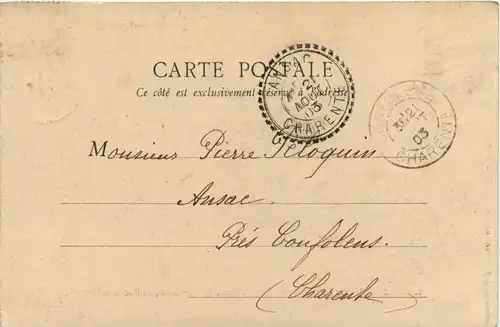 CARTE POSTALE
Ce côté est exclusivement réservé à l'adresse
ANSAC
AOUT
03
CHARENTE
03
CHARENTE
Monsieur Pierre
Ansac
Près Confolens
(Charente)